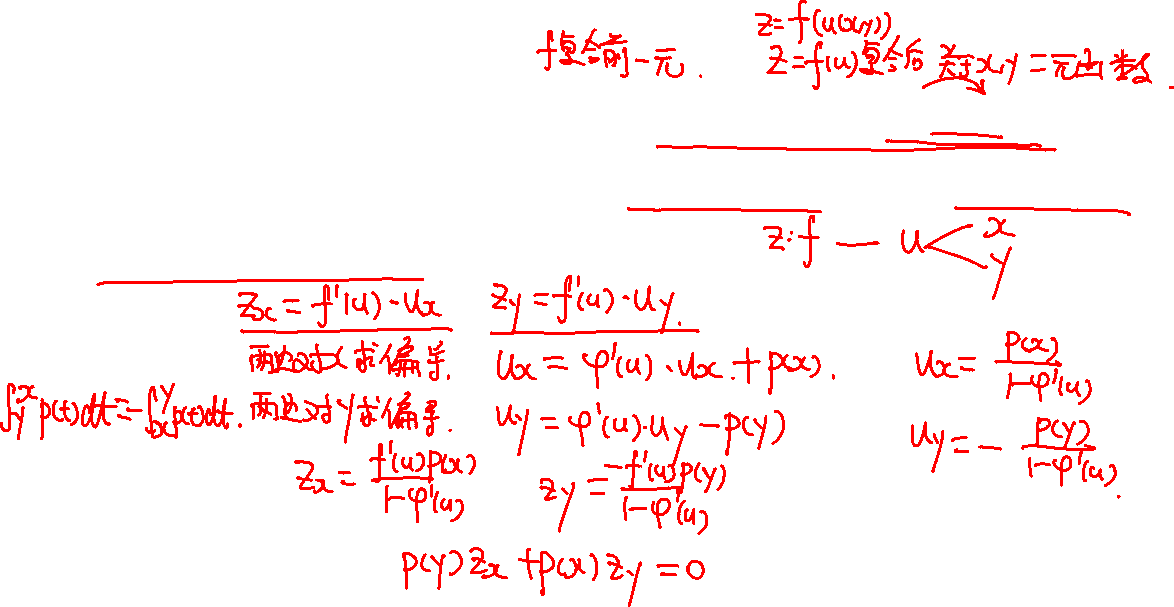 z=f(u(x,y))
f复合前一元. z=f(u)复合后 关于x,y二元函数.
z:f — u < x y
z_x = f'(u)·u_x z_y = f'(u)·u_y.
两边对x求偏导. u_x = φ'(u)·u_x.+p(x). u_x = p(x)/(1-φ'(u))
∫_y^x p(t)dt = -∫_x^y p(t)dt. 两边对y求偏导. u_y = φ'(u)·u_y - p(y) u_y = - p(y)/(1-φ'(u)).
z_x = f'(u)p(x)/(1-φ'(u)) z_y = -f'(u)p(y)/(1-φ'(u))
p(y)z_x + p(x)z_y = 0